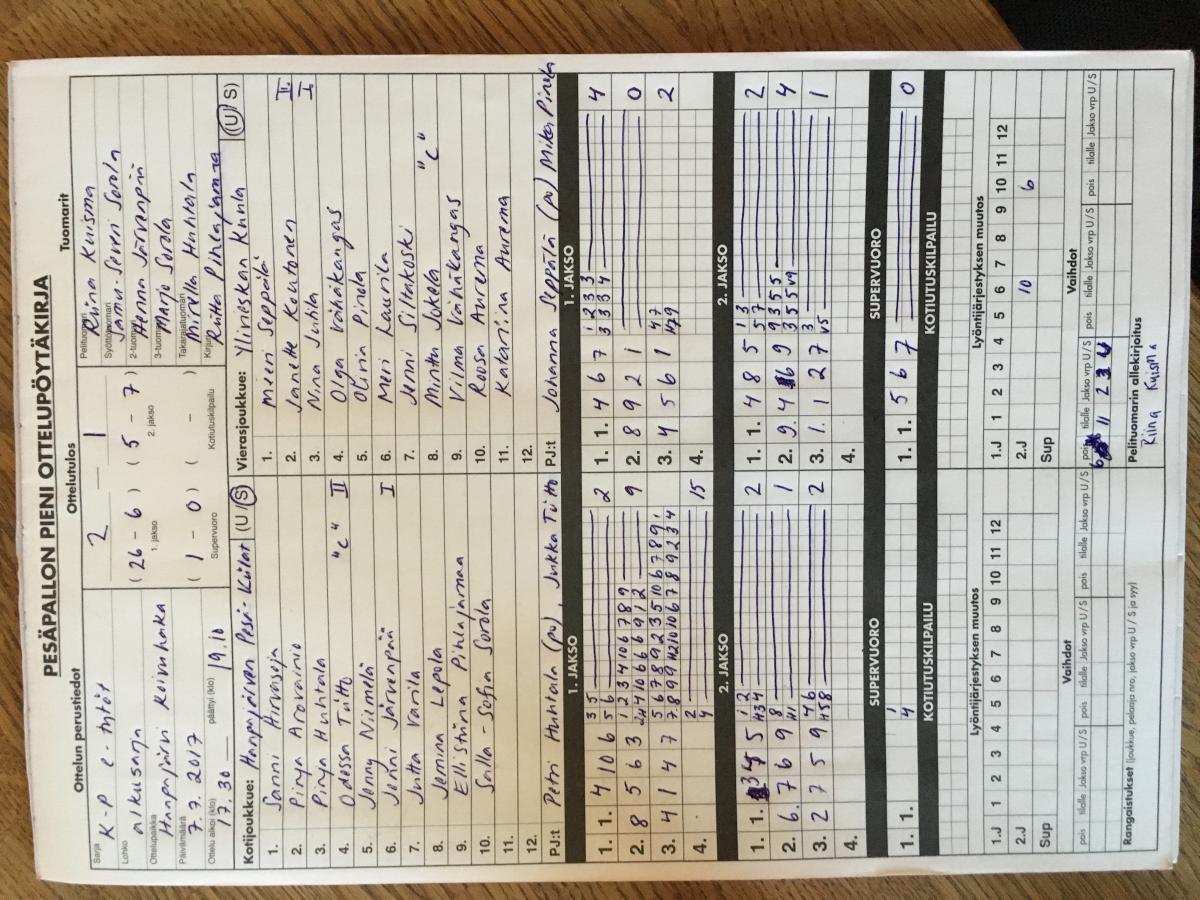 PESÄPALLON PIENI OTTELUPÖYTÄKIRJA
Ottelun perustiedot
Ottelutulos
Tuomarit
Sarja
K-P e-tytöt
Lohko
alkusarja
Ottelupaikka
Haapajärvi Koivuhaka
Päivämäärä
7.7.2017
Ottelu alkoi (klo)
17.30
päättyi (klo)
19.10
2 – 1
(26 – 6) (5 – 7)
1. jakso 2. jakso
(1 – 0) ( – )
Supervuoro Kotiutuskilpailu
Pelituomari
Riina Kuisma
Syöttötuomari
Samu-Severi Sorola
2-tuomari
Henna Järvenpää
3-tuomari
Marjo Sorola
Takarajatuomari
Mirella Huhtala
Riitta Pihlajamaa
Kotijoukkue: Haapajärven Pesä-Kiilat (U/S)
1. Sanni Arovaoja
2. Pinja Arovainio
3. Pinja Huhtala
4. Odessa Tuitto "C" II
5. Jonny Niemelä
6. Jonni Järvenpää I
7. Jutta Varila
8. Jemina Lepola
9. Ellistiina Pihlajamaa
10. Salla-Sofia Sorola
11.
12.
PJ:t Petri Huhtala (pv), Jukka Tuitto
Vierasjoukkue: Ylivieskan Kuula (U/S)
1. Meeri Seppälä
2. Janette Koutonen II
3. Nina Juhila I
4. Olga Vähäkangas
5. Olivia Pirola
6. Meri Laurila
7. Jenni Siltakoski
8. Minttu Jokela "C"
9. Vilma Vähäkangas
10. Roosa Aurema
11. Katariina Aurema
12.
PJ:t Johanna Seppälä (pv) Mika Pirola
1. JAKSO
1. JAKSO
1. 1. 4 10 6 5 6 2
3 5
2. 8 5 6 3 9
3. 4 1 4 7
4. 15
1. 1. 4 6 7 3 3 3 4 4
1 2 3 3
2. 8 9 2 1 0
3. 4 5 6 1 2
4.
2. JAKSO
2. JAKSO
1. 1. 2
2. 6. 7 6 9 1
3. 2 7 5 9 2
4.
1. 1. 4 8 5 5 7 2
1 3
2. 9. 4 4
3. 1. 1 2 7 1
4.
SUPERVUORO
SUPERVUORO
1. 1. 4 1
1. 1. 5 6 7 0
KOTIUTUSKILPAILU
KOTIUTUSKILPAILU
Lyöntijärjestyksen muutos
Lyöntijärjestyksen muutos
1.J 1 2 3 4 5 6 7 8 9 10 11 12
2.J
Sup
1.J 1 2 3 4 5 6 7 8 9 10 11 12
2.J 10 6
Sup
Vaihdot
Vaihdot
pois tilalle Jakso vrp U/S pois tilalle Jakso vrp U/S pois tilalle Jakso vrp U/S
pois tilalle Jakso vrp U/S pois tilalle Jakso vrp U/S pois tilalle Jakso vrp U/S
6 11 2 3 U
Rangaistukset (joukkue, pelaaja nro, jakso vrp U / S ja syy)
Pelituomarin allekirjoitus
Riina Kuisma